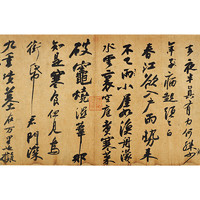 夜半真有力何殊
年子病起須已白
春江欲入戶雨勢來
不已雨小屋如漁舟濛濛
水雲裏空庖煮寒菜
破竈燒濕葦那
知是寒食但見烏
銜帋君門深
九重墳墓在万里也擬